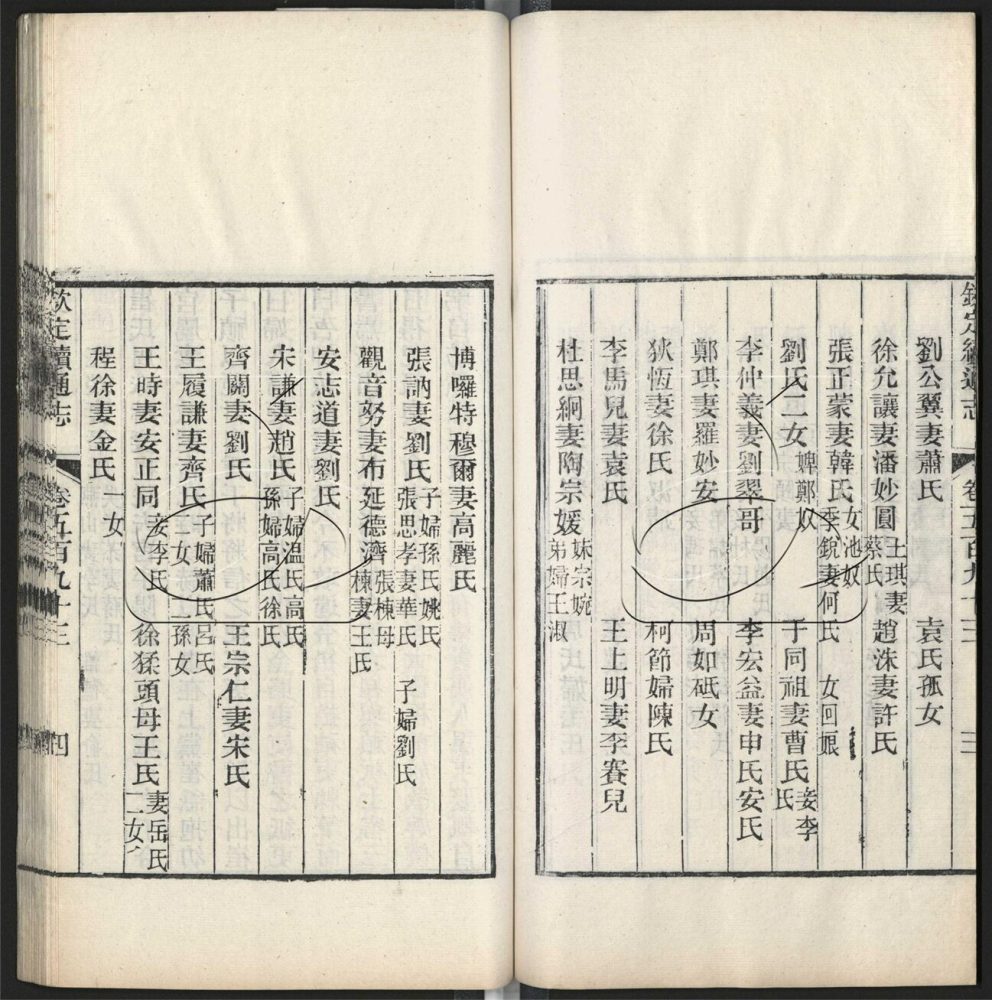 欽定續通志 卷五百九十三 三
劉公翼妻蕭氏 袁氏孤女
徐允讓妻潘妙圓 王琪妻蔡氏 趙洙妻許氏
張正蒙妻韓氏 女池奴 季銳妻何氏 女回娘
劉氏二女 婢鄭奴 于同祖妻曹氏 妾李氏
李仲義妻劉翠哥 李宏益妻申氏安氏
鄭琪妻羅妙安 周如砥女
狄恆妻徐氏 柯節婦陳氏
李馬兒妻袁氏 王士明妻李賽兒
杜思絅妻陶宗媛 妹宗婉 弟婦王淑
博囉特穆爾妻高麗氏
張訥妻劉氏 子婦孫氏姚氏 張思孝妻華氏 子婦劉氏
觀音努妻布延德濟 張棟母 棟妻王氏
安志道妻劉氏
宋謙妻趙氏 子婦溫氏高氏 孫婦高氏徐氏
齊關妻劉氏 王宗仁妻宋氏
王履謙妻齊氏 子婦蕭氏呂氏 二女 孫女
王時妻安正同 妾李氏 徐猱頭母王氏 妻岳氏 二女
程徐妻金氏 一女
欽定續通志 卷五百九十三 四